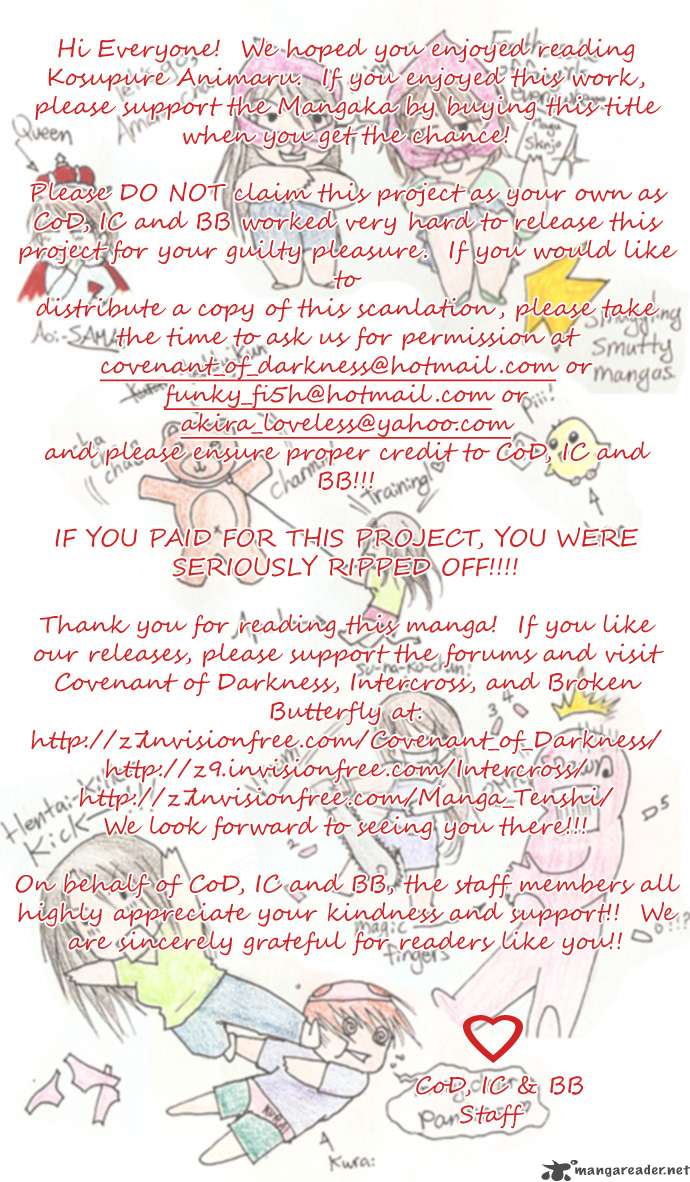 Hi Everyone! We hoped you enjoyed reading
Kosupure Animaru. If you enjoyed this work,
please support the Mangaka by buying this title
when you get the chance!
Queen
Please DO NOT claim this project as your own as
CoD, IC and BB worked very hard to release this
project for your guilty pleasure. If you would like
to
distribute a copy of this scanlation, please take
the time to ask us for permission at
Aoi-SAMA
Smuggling
Smutty
mangas
covenant_of_darkness@hotmail.com or
funky_fi5h@hotmail.com or
akira_loveless@yahoo.com
Piii!
and please ensure proper credit to CoD, IC and
BB!!!
la
cha
cha
training!
IF YOU PAID FOR THIS PROJECT, YOU WERE
SERIOUSLY RIPPED OFF!!!!
Thank you for reading this manga! If you like
our releases, please support the forums and visit
Covenant of Darkness, Intercross, and Broken
Butterfly at:
Su-na-ko-chan!
3 4
http://z7.invisionfree.com/Covenant_of_Darkness/
http://z9.invisionfree.com/Intercross/
http://z7.invisionfree.com/Manga_Tenshi/
We look forward to seeing you there!!!
Hentai-Kick
Kick
2
5
On behalf of CoD, IC and BB, the staff members all
highly appreciate your kindness and support!! We
are sincerely grateful for readers like you!!
magic
fingers
CoD, IC & BB
Staff
Kura:
mangareader.net